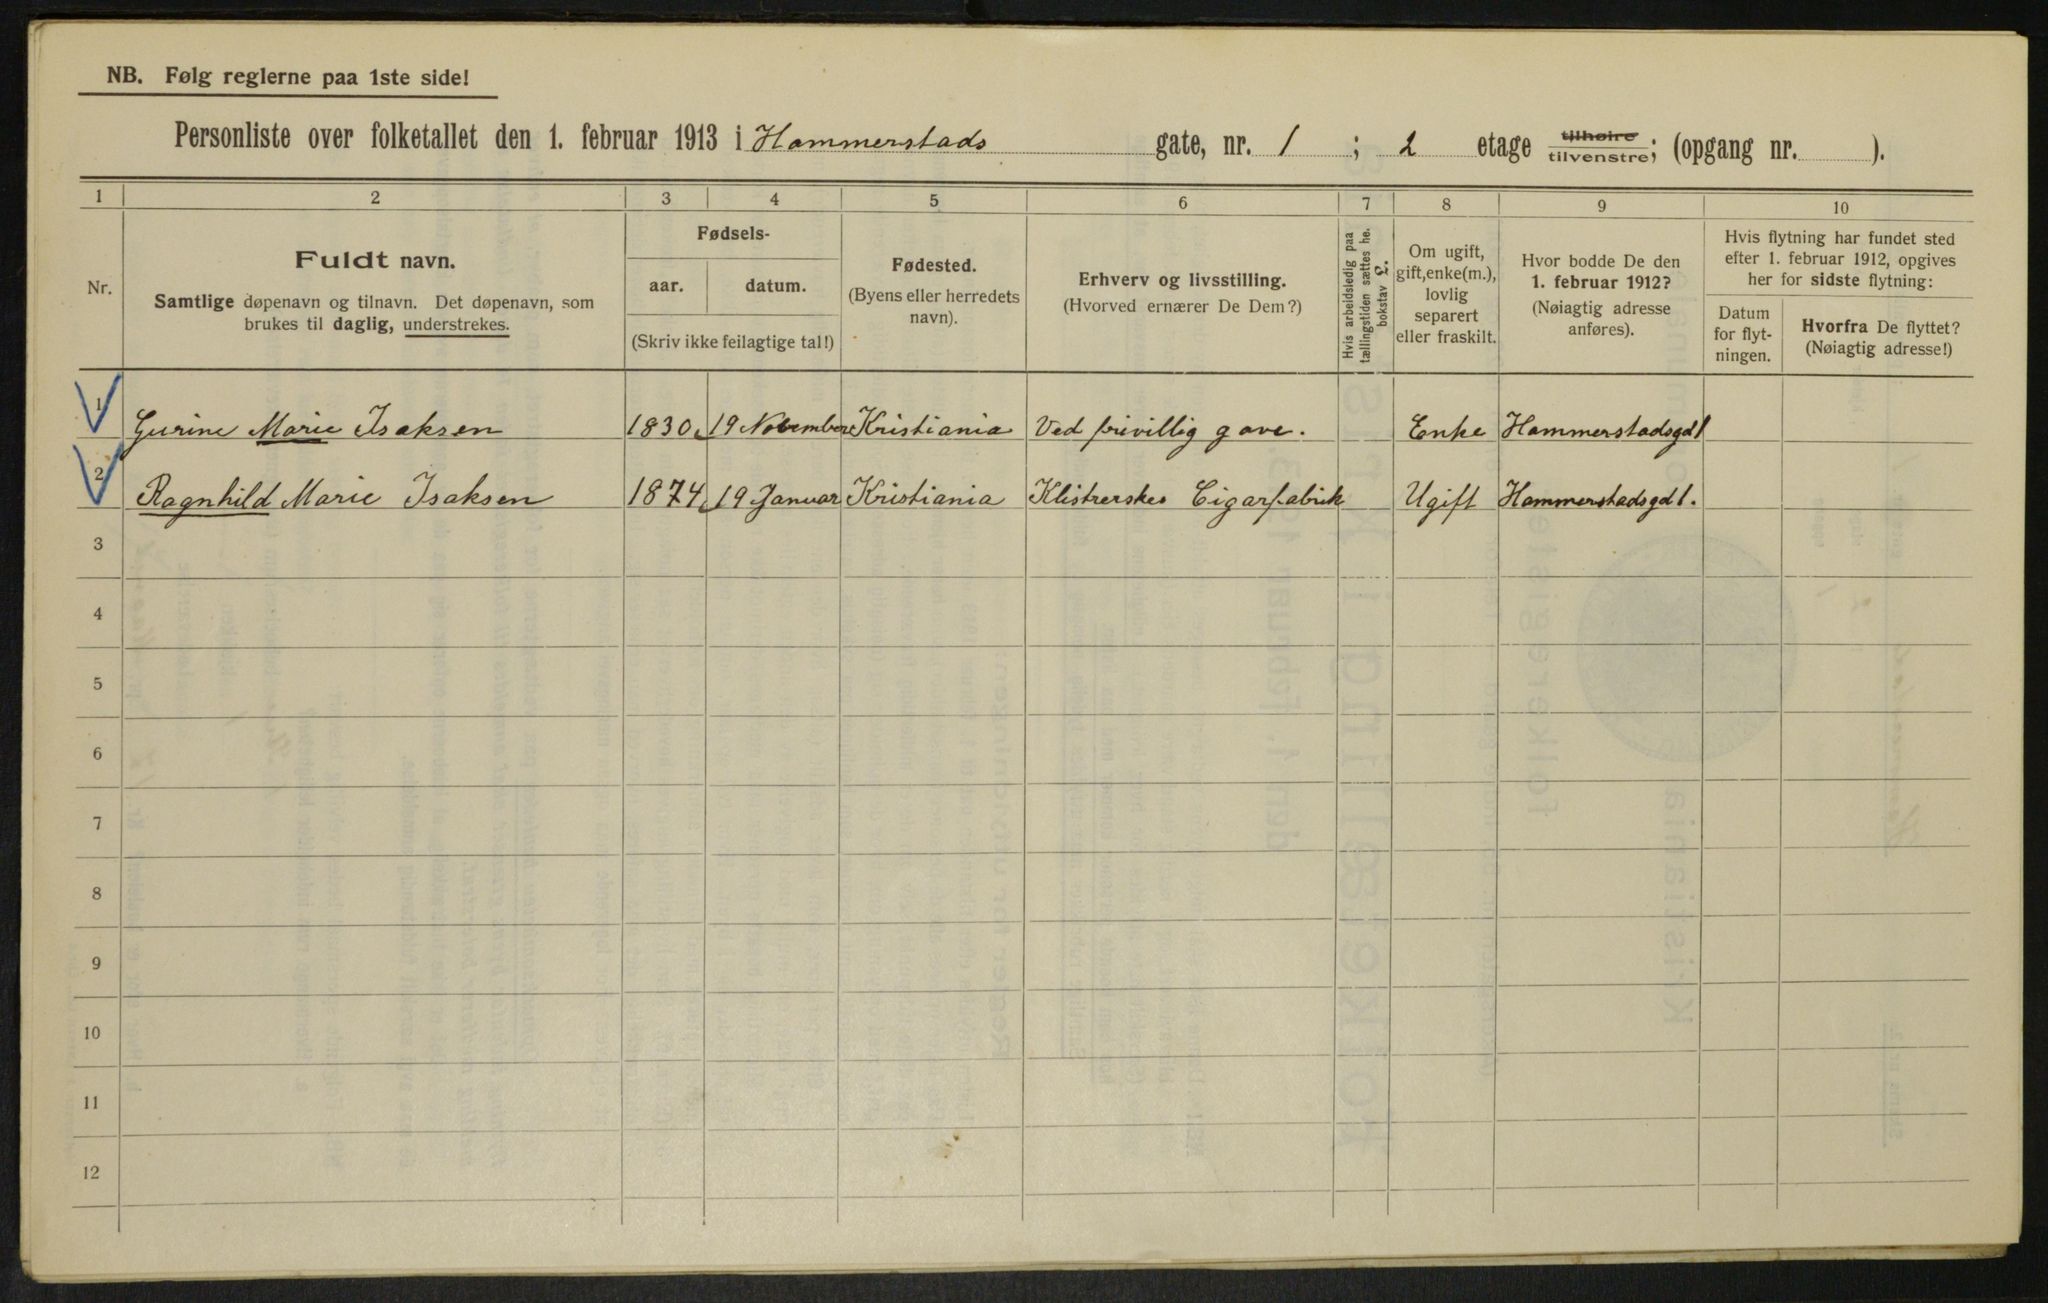 NB. Følg reglerne paa 1ste side!
Personliste over folketallet den 1. februar 1913 i Hammerstads gate, nr. 1 ; 2 etage tilhøire tilvenstre; (opgang nr. ).
1 2 3 4 5 6 7 8 9 10
Nr.
Fuldt navn.
Samtlige døpenavn og tilnavn. Det døpenavn, som
brukes til daglig, understrekes.
Fødsels-
aar. datum.
(Skriv ikke feilagtige tal!)
Fødested.
(Byens eller herredets
navn).
Erhverv og livsstilling.
(Hvorved ernærer De Dem?)
Hvis arbeidsledig paa
tællingstiden sættes he.
bokstav £.
Om ugift,
gift, enke(m.),
lovlig
separert
eller fraskilt.
Hvor bodde De den
1. februar 1912?
(Nøiagtig adresse
anføres).
Hvis flytning har fundet sted
efter 1. februar 1912, opgives
her for sidste flytning:
Datum
for flyt-
ningen.
Hvorfra De flyttet?
(Nøiagtig adresse!)
1 Gurine Marie Isaksen 1830 19 November Kristiania Ved frivillig gave. Enke Hammerstadsgd 1
2 Ragnhild Marie Isaksen 1874 19 Januar Kristiania Klistrerske Cigarfabrik Ugift Hammerstadsgd 1.
3
4
5
6
7
8
9
10
11
12